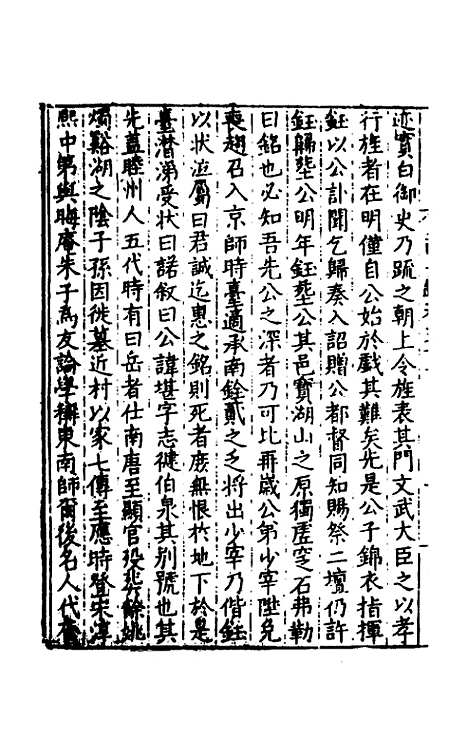 迹實白御史乃疏之朝上令旌表其門文武大臣之以孝
行旌者在明僅自公始於戲其難矣先是公子錦衣指揮
鈺以公訃聞乞歸奏入詔贈公都督同知賜祭二壇仍許
鈺歸塟公明年鈺塟公其邑寶湖山之原獨虛穵石弗勒
曰銘也必知吾先公之深者乃可比再歲公第少宰陞免
喪趨召入京師時臺適承南銓貳之乏將出少宰乃偕鈺
以状泣屬曰君誠迄惠之銘則死者庶無恨於地下於是
臺潸涕受状曰諾叙曰公諱堪字志健伯泉其别號也其
先蓋睦州人五代時有曰岳者仕南唐至顯官歿塟餘姚
燭谿湖之陰子孫因徙墓近村以家七傳至應時登宋淳
熙中第與晦庵朱子為友論學稱東南師爾後名人代